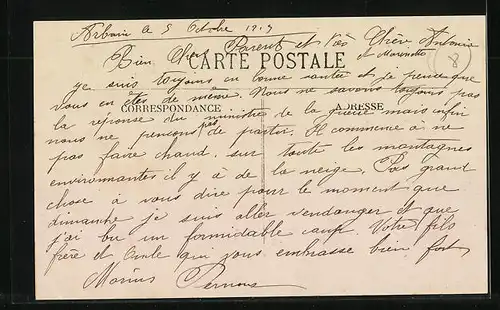 Arbois le 5 Octobre 19.9
Bien Chers Parents et Très Chère Antonia
et Marinette
CARTE POSTALE
8
je suis toujours en bonne santée et je pense que
vous en êtes de même. Nous ne savons toujours pas
CORRESPONDANCE
ADRESSE
la réponse du ministre de la guerre mais enfin
nous ne pensons pas de partir. Il commence à ne
pas faire chaud. sur toute les montagnes
environnantes il y à de la neige. Pas grand
chose à vous dire pour le moment que
dimanche je suis aller vendanger et que
j'ai bu un formidable coup. Votre fils
frère et Oncle qui vous embrasse bien fort
Marius